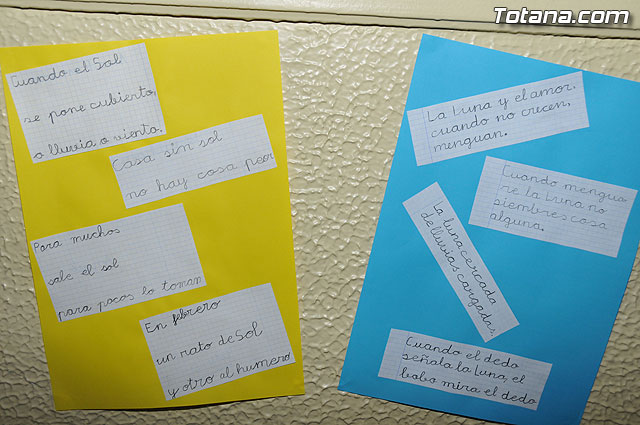 Totana.com
Cuando el Sol
se pone cubierto,
o lluvia o viento.
Casa sin sol
no hay cosa peor
Para muchos
sale el sol
para pocos lo toman
En febrero
un rato de Sol
y otro al humero
La Luna y el amor,
cuando no crecen,
menguan.
Cuando mengua
re la Luna no
siembres cosa
alguna.
La luna cercada
de lluvias cargadas.
Cuando el dedo
señala la Luna, el
bobo mira el dedo